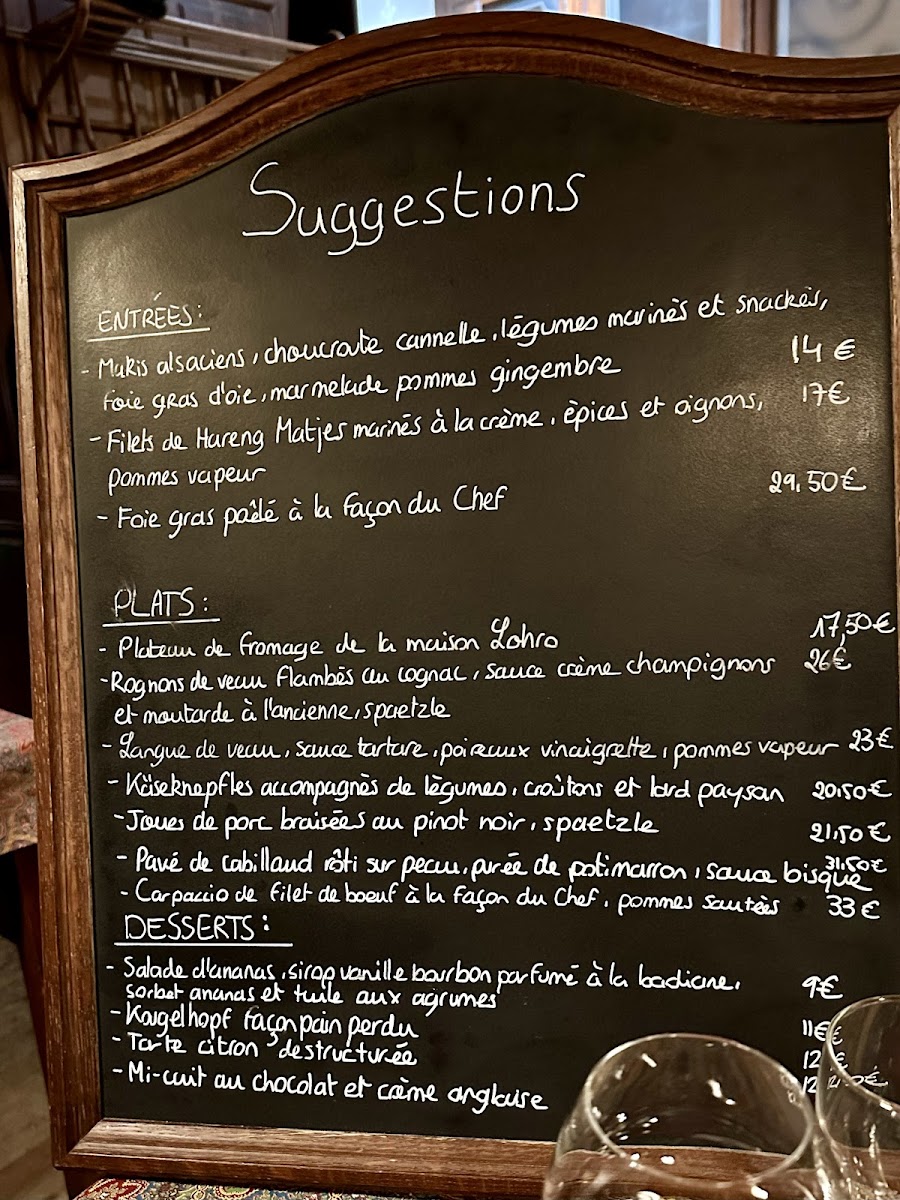 Suggestions
ENTRÉES:
- Makis alsaciens, choucroute cannelle, légumes marinés et snackés,
foie gras d'oie, marmelade pommes gingembre 14 €
- Filets de Hareng Matjes marinés à la crème, épices et oignons, 17€
pommes vapeur
- Foie gras poêlé à la façon du Chef 29,50€
PLATS:
- Plateau de fromage de la maison Lohro 17,50€
- Rognons de veau flambés au cognac, sauce crème champignons 26€
et moutarde à l'ancienne, spaetzle
- Langue de veau, sauce tartare, poireaux vinaigrette, pommes vapeur 23€
- Käseknepfles accompagnés de légumes, croûtons et lard paysan 20,50€
- Joues de porc braisées au pinot noir, spaetzle 21,50€
- Pavé de cabillaud rôti sur peau, purée de potimarron, sauce bisque 31,50€
- Carpaccio de filet de boeuf à la façon du Chef, pommes sautées 33€
DESSERTS:
- Salade d'ananas, sirop vanille bourbon parfumé à la badiane, 9€
sorbet ananas et tuile aux agrumes
- Kougelhopf façon pain perdu 11€
- Tarte citron destructurée
- Mi-cuit au chocolat et crème anglaise